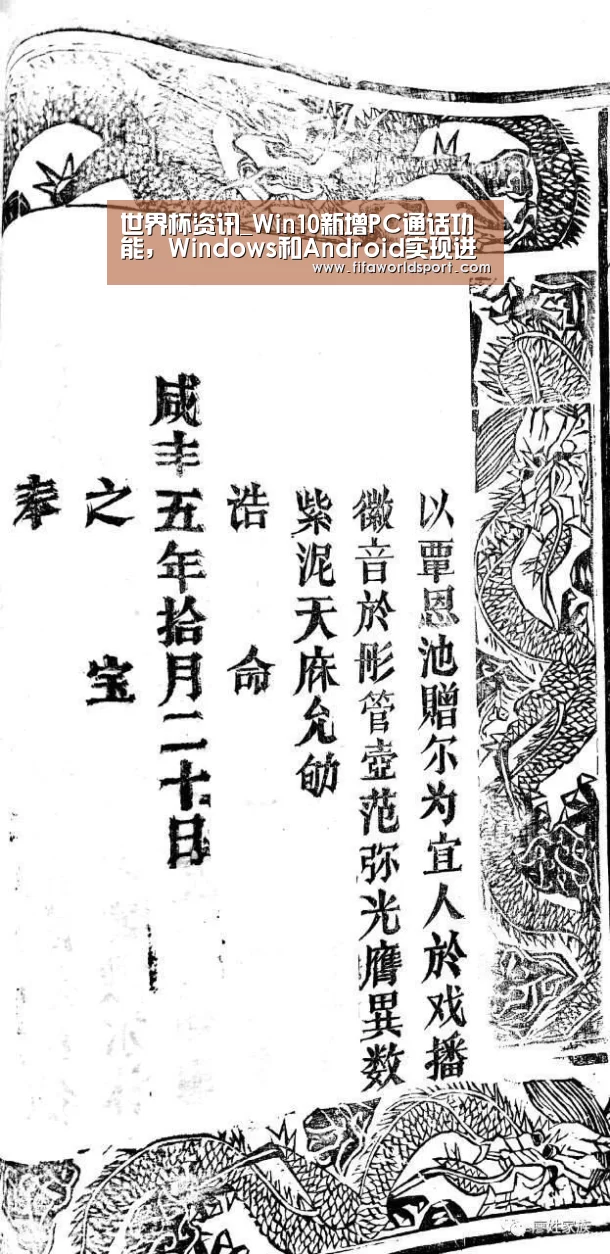 世界杯资讯_Win10新增PC通话功
能，Windows和Android实现进
www.fifaworldsport.com
以覃恩池赠尔为宜人於戏播
徽音於彤管壶范弥光膺異数
紫泥天庥允劭
诰命
咸丰五年拾月二十日
之宝
奉